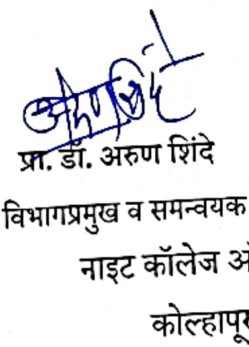 प्रा. डॉ. अरुण शिंदे
विभागप्रमुख व समन्वयक
नाइट कॉलेज
कोल्हापू